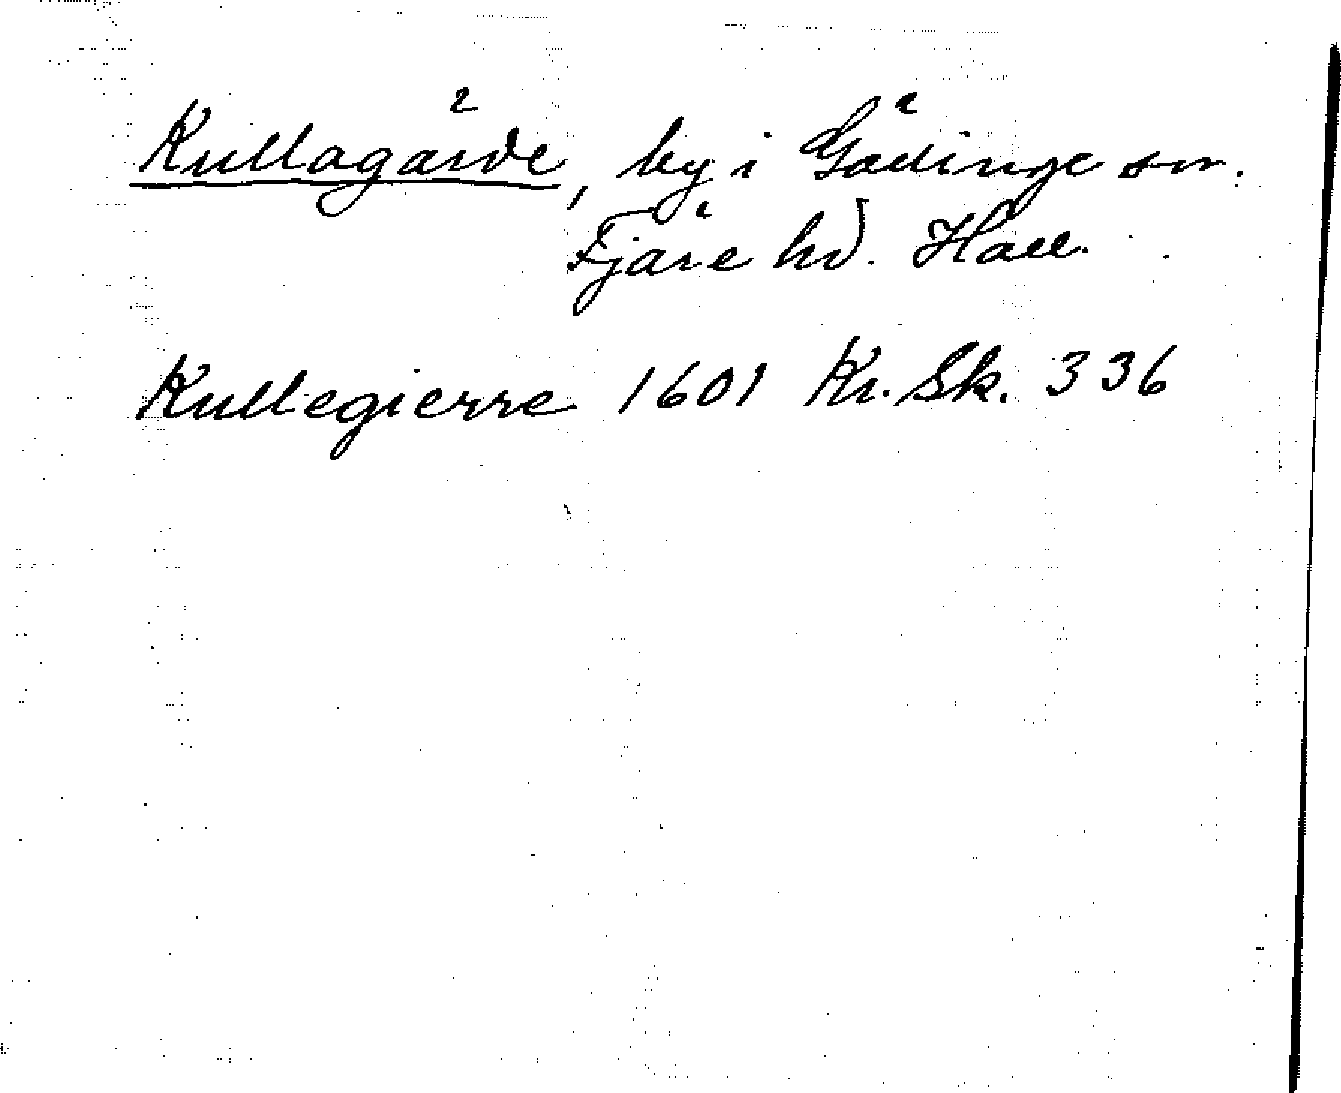 Kullagärde, by i Gällinge sn.
Fjäre hd. Hall.
Kullegierre 1601 Kr. Sk. 336